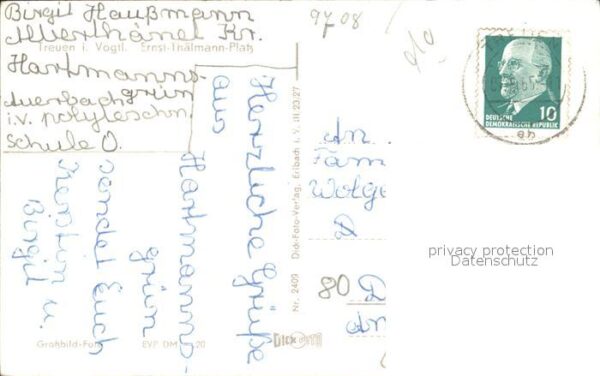 Birgit Haußmann
Kr.
Treuen i. Vogtl. Ernst-Thälmann-Platz
Hartmanns-
grün
Auerbach
i.V. polytechn.
Schule O.
Herzliche Grüße
aus
Hartmanns-
grün
sendet Euch
Kerstin u.
Birgit
Großbild-Foto EVP DM 20
Nr. 2409 Dick-Foto-Verlag, Erlbach i. V. III 23 27
DICK
9708
10
DEUTSCHE
DEMOKRATISCHE REPUBLIK
An
Fam
Wolge
80 D
privacy protection
Datenschutz